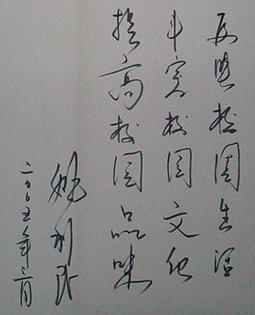 反映校园生活
丰实校园文化
提高校园品味
姚利民
二〇〇五年二月